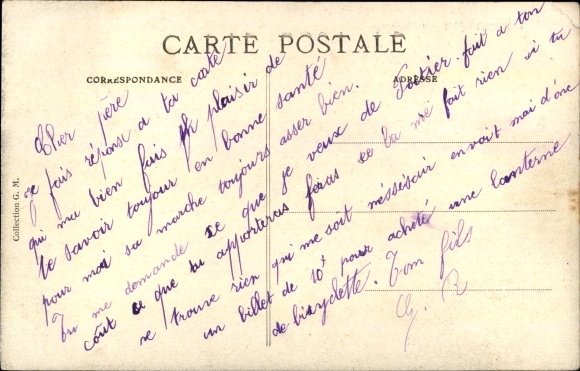 CARTE POSTALE
CORRESPONDANCE
ADRESSE
Collection G. M.
Cher père
Je fais réponse a ta carte
qui ma bien fais plaisir de
te savoir toujour en bonne santé
pour moi sa marche toujours asser bien.
Tu me demande se que je veux de Poitier. fait a ton
coût se que tu apporteras feras se la me fait rien si tu
ne trouve rien qui me soit nésséçair envoit moi d'onc
un billet de 10f pour acheté une lanterne
de bicyclette. Ton fils
G. R